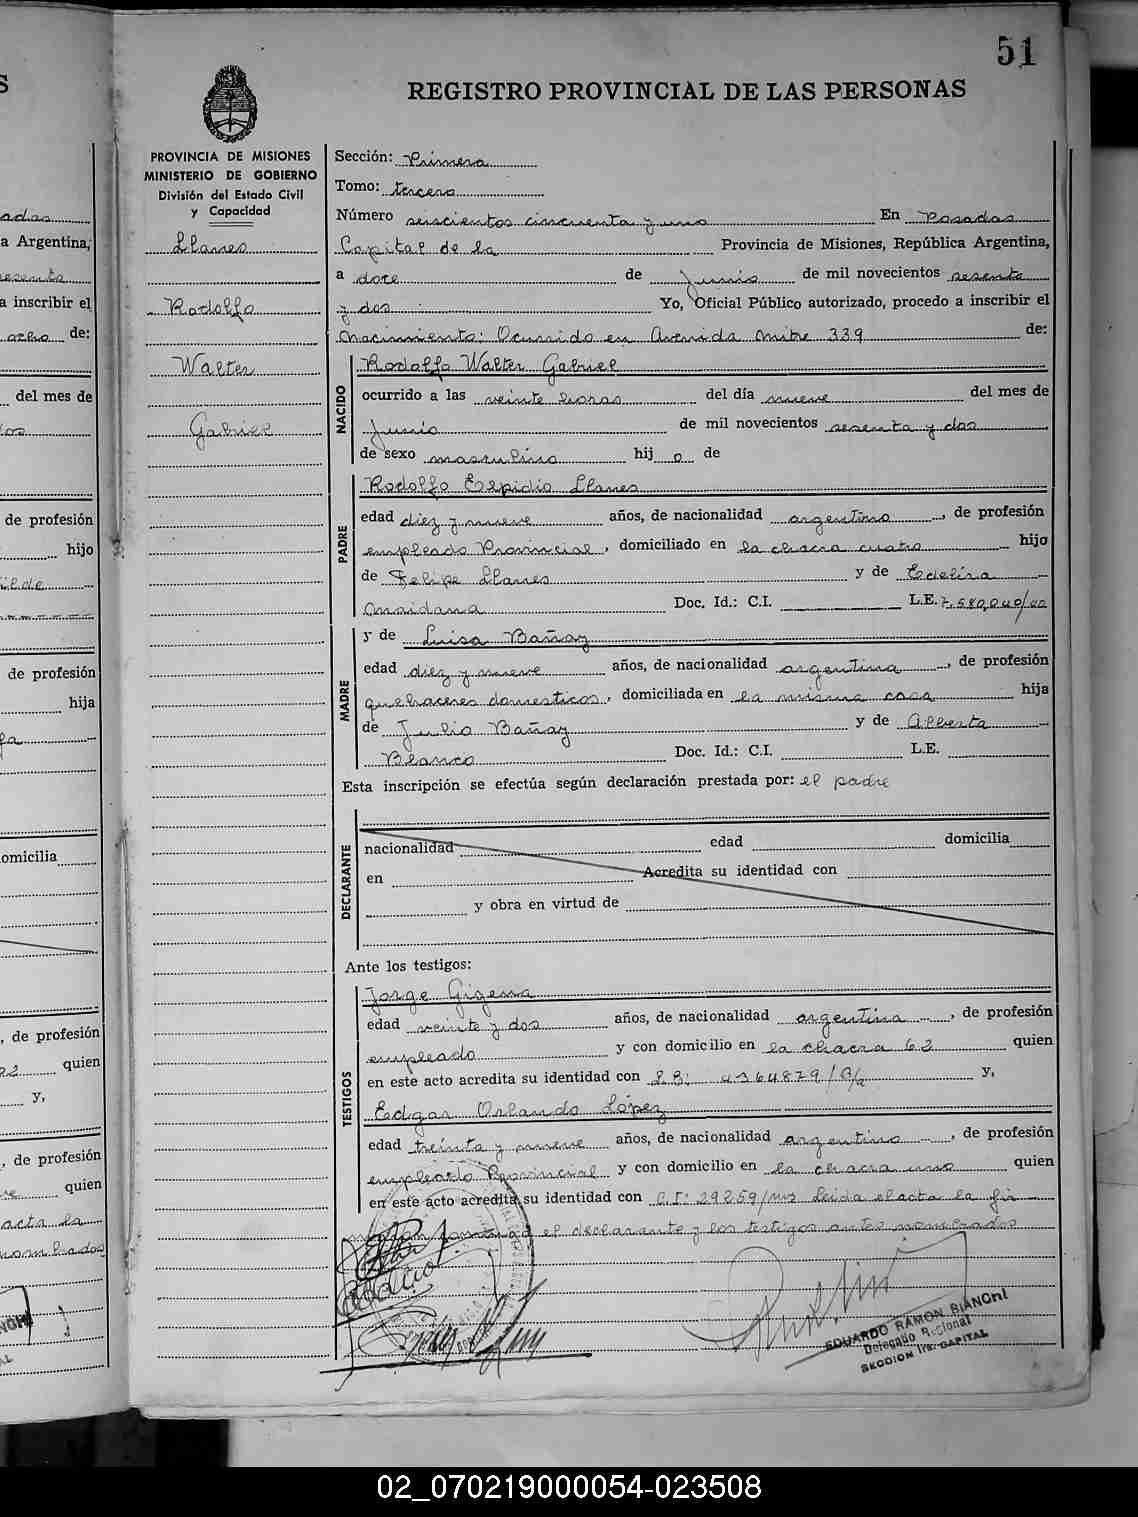 51
REGISTRO PROVINCIAL DE LAS PERSONAS
PROVINCIA DE MISIONES
MINISTERIO DE GOBIERNO
División del Estado Civil
y Capacidad
Llanes
Rodolfo
Walter
Gabriel
Sección: Primera
Tomo: tercero
Número seiscientos cincuenta y uno En Posadas
Capital de la Provincia de Misiones, República Argentina,
a doce de Junio de mil novecientos sesenta
y dos Yo, Oficial Público autorizado, procedo a inscribir el
nacimiento: Ocurrido en Avenida Mitre 339 de:
NACIDO
Rodolfo Walter Gabriel
ocurrido a las veinte horas del día nueve del mes de
Junio de mil novecientos sesenta y dos
de sexo masculino hij o de
PADRE
Rodolfo Elpidio Llanes
edad diez y nueve años, de nacionalidad argentino, de profesión
empleado Provincial, domiciliado en la chacra cuatro hijo
de Felipe Llanes y de Edelira
Maidana Doc. Id.: C.I. L.E. 7.580.040/00
MADRE
y de Luisa Bañay
edad diez y nueve años, de nacionalidad argentina, de profesión
quehaceres domesticos, domiciliada en la misma casa hija
de Julio Bañay y de Alberta
Blanco Doc. Id.: C.I. L.E.
Esta inscripción se efectúa según declaración prestada por: el padre
DECLARANTE
nacionalidad edad domicilia
en Acredita su identidad con
y obra en virtud de
Ante los testigos:
TESTIGOS
Jorge Gigena
edad veinte y dos años, de nacionalidad argentina, de profesión
empleado y con domicilio en la chacra 62 quien
en este acto acredita su identidad con 4364879 y,
Edgar Orlando López
edad treinta y nueve años, de nacionalidad argentino, de profesión
empleado Provincial y con domicilio en la chacra uno quien
en este acto acredita su identidad con C.I: 29259/mz Leida el acta la fir
man conmigo el declarante y los testigos antes nombrados
EDUARDO RAMON BIANCHI
Delegado Regional
SECCION 1ra. CAPITAL
a Argentina,
a inscribir el
ocho de:
del mes de
de profesión
hijo
de profesión
hija
omicilia
, de profesión
quien
y,
, de profesión
quien
acta la
nombrados
02_070219000054-023508